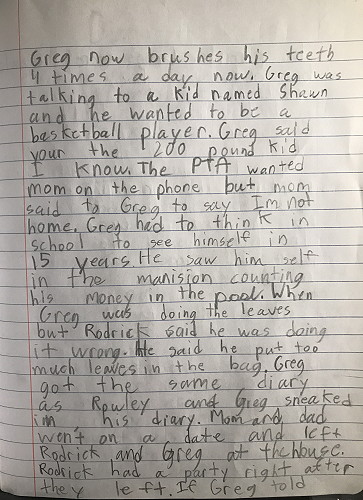 Greg now brushes his teeth
4 times a day now. Greg was
talking to a kid named Shawn
and he wanted to be a
basketball player. Greg said
your the 200 pound kid
I know. The PTA wanted
mom on the phone but mom
said to Greg to say I'm not
home. Greg had to think in
school to see himself in
15 years. He saw him self
in the manision counting
his money in the pool. When
Greg was doing the leaves
but Rodrick said he was doing
it wrong. He said he put too
much leaves in the bag. Greg
got the same diary
as Rowley and Greg sneaked
in his diary. Mom and dad
went on a date and left
Rodrick and Greg at the house.
Rodrick had a party right after
they left. If Greg told